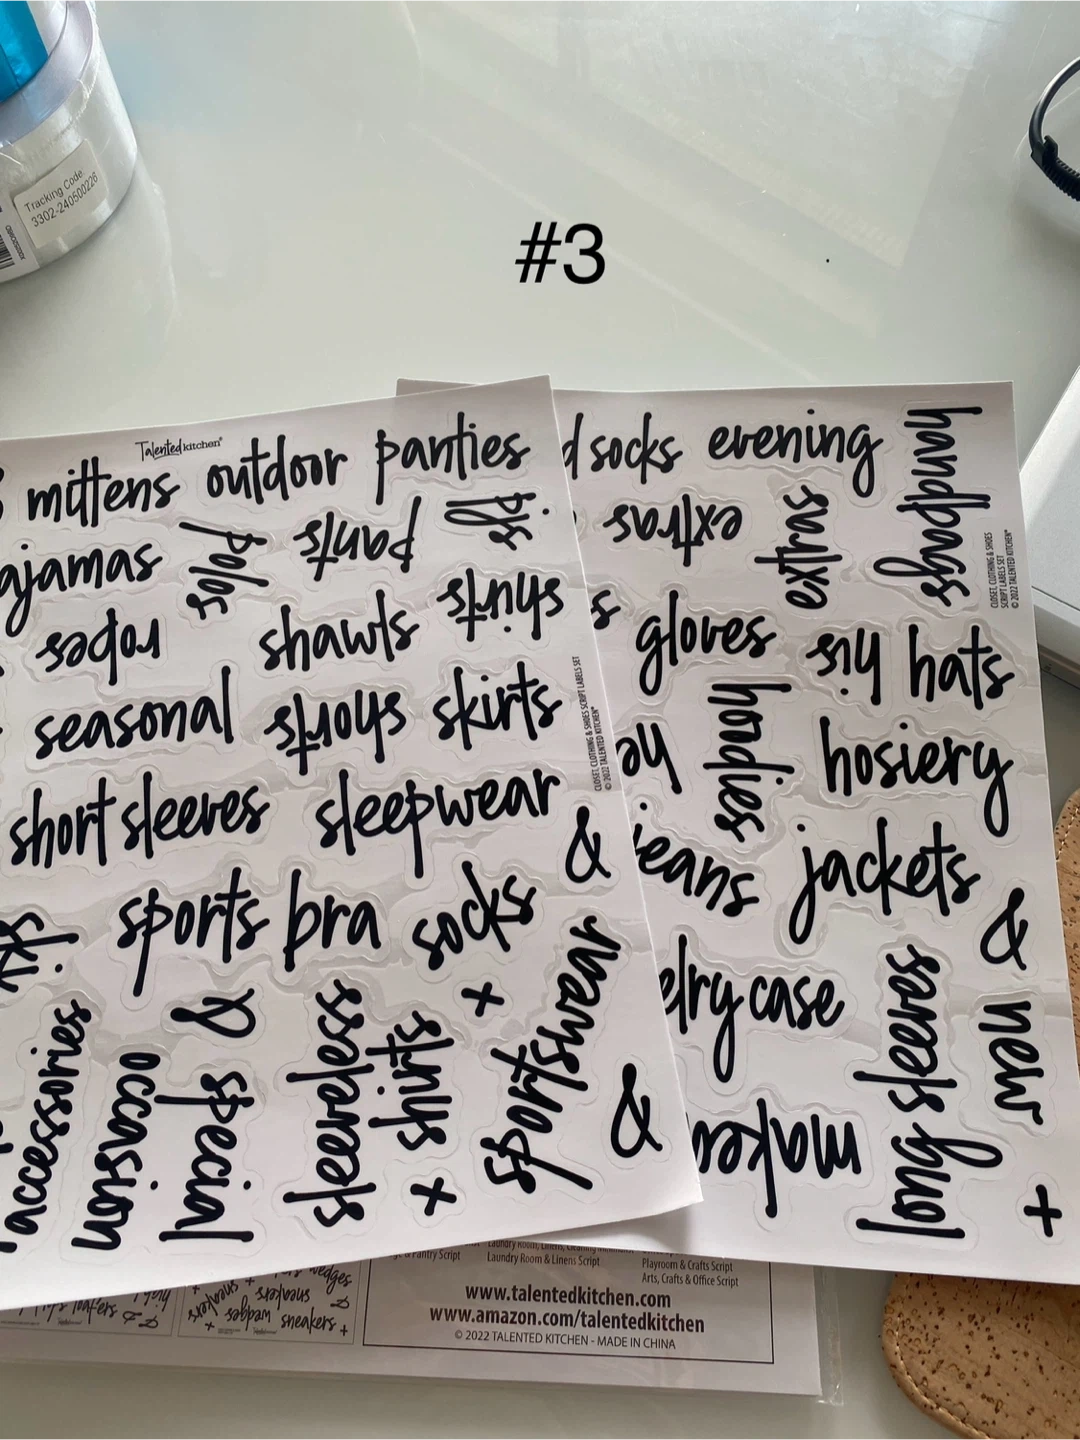 Tracking Code
3302-240500226
#3
Talented kitchen®
mittens
outdoor
panties
ajamas
polos
pants
pjs
robes
shawls
shirts
seasonal
shorts
skirts
short sleeves
sleepwear
&
sports bra
socks
+
sportswear
accessories
occasion
&
special
sleeveless
t-shirts
+
&
CLOSET, CLOTHING & SHOES SCRIPT LABELS SET
© 2022 TALENTED KITCHEN®
d socks
evening
handbags
extras
extras
CLOSET, CLOTHING & SHOES
SCRIPT LABELS SET
© 2022 TALENTED KITCHEN®
s
gloves
his
hats
he
hoodies
hosiery
jeans
jackets
&
elry case
long sleeves
new
make
+
& Pantry Script
Laundry Room & Linens Script
Playroom & Crafts Script
Arts, Crafts & Office Script
wedges
sneakers
sneakers
+
loafers
&
wedges
sneakers +
+
www.talentedkitchen.com
www.amazon.com/talentedkitchen
© 2022 TALENTED KITCHEN - MADE IN CHINA